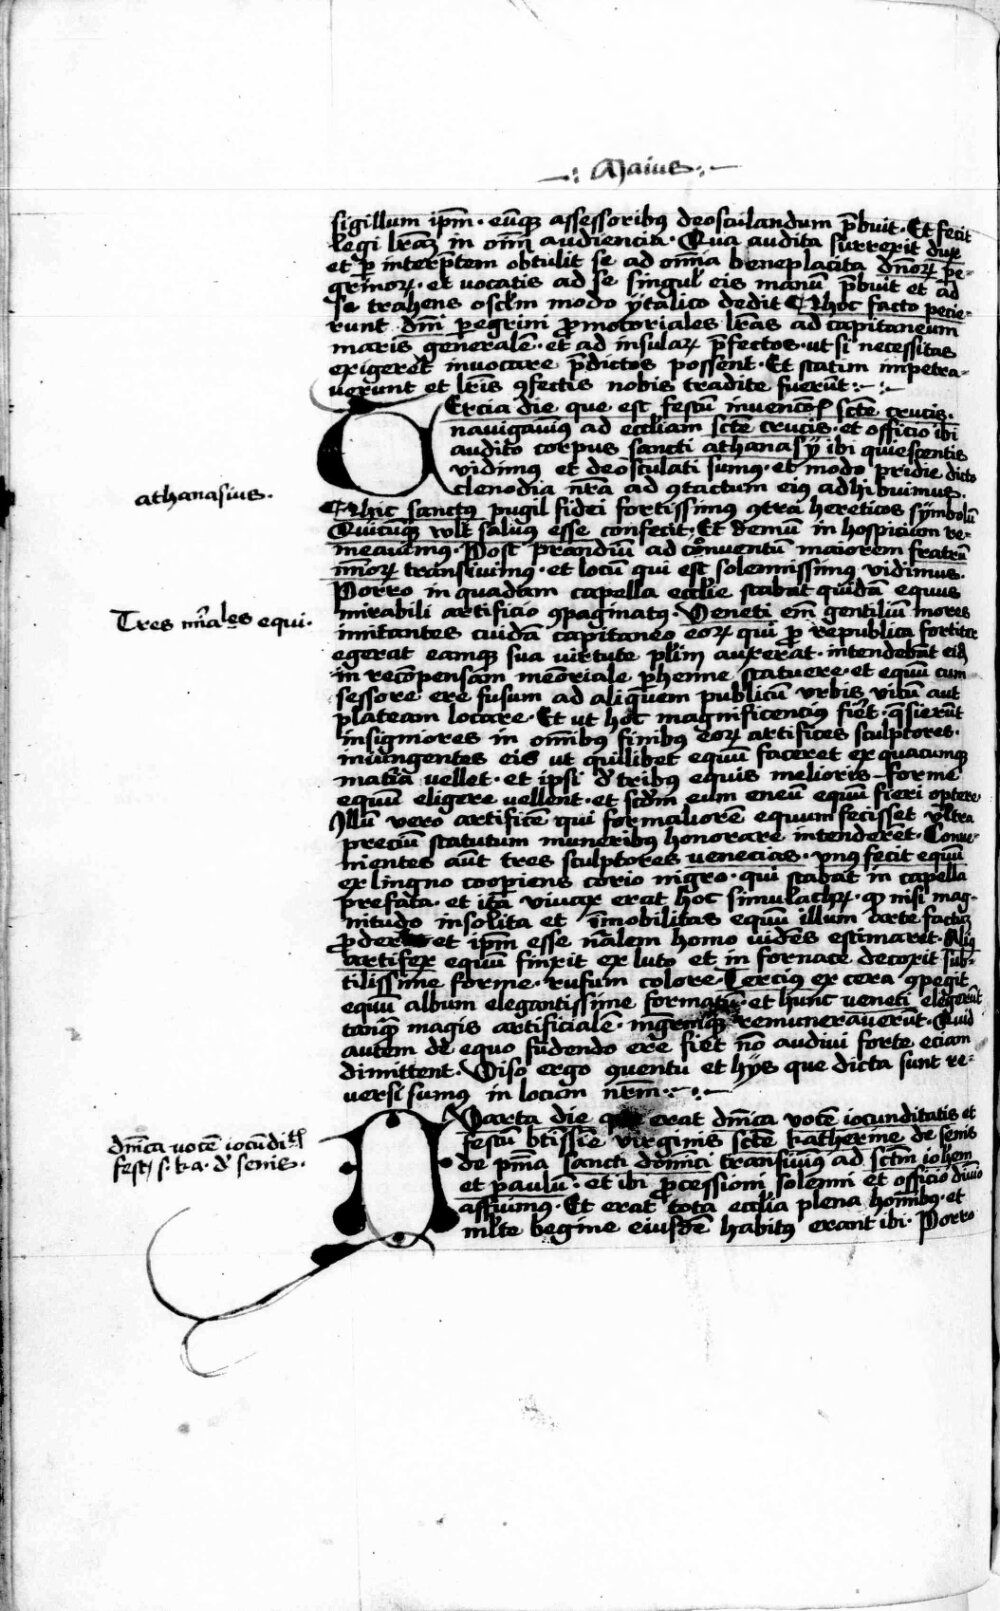 Maius
sigillum ipm̄. eūq̄ assessoribus deosculandum p̄buit. Et fecit
legi lr̄aʒ in om̄i audiencia. Qua audita surrexit dux
et p̲ interp̄tem obtulit se ad om̄ia beneplacita dn̄oꝝ pe-
grinoꝝ. et vocatis ad se singul' eis manū p̄buit et ad
se trahens oscl'm modo ytalico dedit ¶ hoc facto pecie-
runt dn̄i p̲egrini ꝓmotoriales lr̄as ad capitaneum
maris generalē. et ad insulaꝝ p̄fectos. ut si necessitas
exigeret invocare p̄dictos possent. Et statim impetra-
verunt et lr̄is ꝯfectis nobis tradite fuerūt
Tercia die que est festū invencōis sctē crucis.
navigavimꝯ ad eccl'iam sctē crucis. et officio ibi
audito corpus sancti athanasÿ ibi quiescentis
vidimꝯ et deosculati sumꝯ. et modo pridie dicto
clenodia nr̄a ad ꝯtactum eiꝯ adhibuimus.
athanasius.
¶ hic sanctꝯ pugil fidei fortissimꝯ ꝯtra hereticos symbolū
Quicūq̄ vult salvꝯ esse confecit. Et demū in hospicium re-
meavimꝯ. Post prandiū ad cōnventū maiorem fratrū
minoꝝ transivimꝯ. et locū qui est solemnissimꝯ vidimus.
Porro in quadam capella eccl'ie stabat quidā equus
mirabili artificio ꝯpaginatꝯ. Veneti em̄ gentiliū mores
Tres mr̄ales equi.
imitantes cuidā capitaneo eoꝝ qui ꝓ republica fortiter
egerat eamq̄ sua virtute pl'im auxerat. intendebāt eid̄
in recōpensam memoriale p̲henne statuere. et equū cum
sessore ere fusum ad aliquem publicū urbis vicū aut
plateam locare. Et ut hoc magnificenciꝯ fiet. q̄sierūt
insigniores in om̄ibꝯ finibꝯ eoꝝ artifices sculptores.
iniungentes eis ut quilibet equū faceret ex quacumq̄
mat'ia vellet. et ipsi de tribꝯ equis melioris forme
equū eligere vellent. et scd̄m eum eneū equū fieri optere
Illū vero artificē qui formaliorē equum fecisset ultra
preciū statutum muneribꝯ honorare intenderēt. Conve-
nientes aūt tres sculptores venecias. unꝯ fecit equū
ex lingno coop̲iens corio nigro. qui stabat in capella
prefata. et ita vivax erat hoc simulachꝝ. qd nisi mag-
nitudo insolita et īmobilitas equū illum arte factū
ꝓderet et ip̄m esse nālem homo vidēs estimaret. Aliꝯ
artifex equū finxit ex luto et in fornace decoxit sub-
tilissime forme. rufum colore. Tercius ex cera ꝯpegit
equū album elegantissime formatū. et hunc veneti elegerūt
tanq̄ magis artificialē. remuneraverūt. Quid
autem de equo fūdendo ere fiet nō audivi forte eciam
dimittent. Viso ergo ꝯventu et hÿs que dicta sunt re-
versi sumꝯ in locum nr̄m.
Quarta die que erat dn̄ica vocē iocunditatis et
festū bt̄issīe virginis sctē katherine de senis
de p̄ma sancti dominici transivimꝯ ad sctm̄ ioh'em
et paulū. et ibi ꝓcessioni solemni et officio divino
affuimꝯ. Et erat tota eccl'ia plena homībꝯ. et
ml'te begine eiusdē habitꝯ erant ibi. Porro
dn̄ica vocē iocūdit'
fest s. ka. de senis.